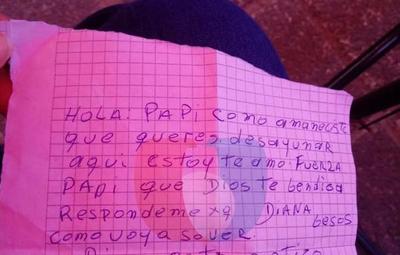 HOLA: PAPi como amaneciste
que queres desayunar
aqui estoy te amo: FUERZA
PApi que Dios te bendiga
Respondeme xq DiANA besos
como voy a saver